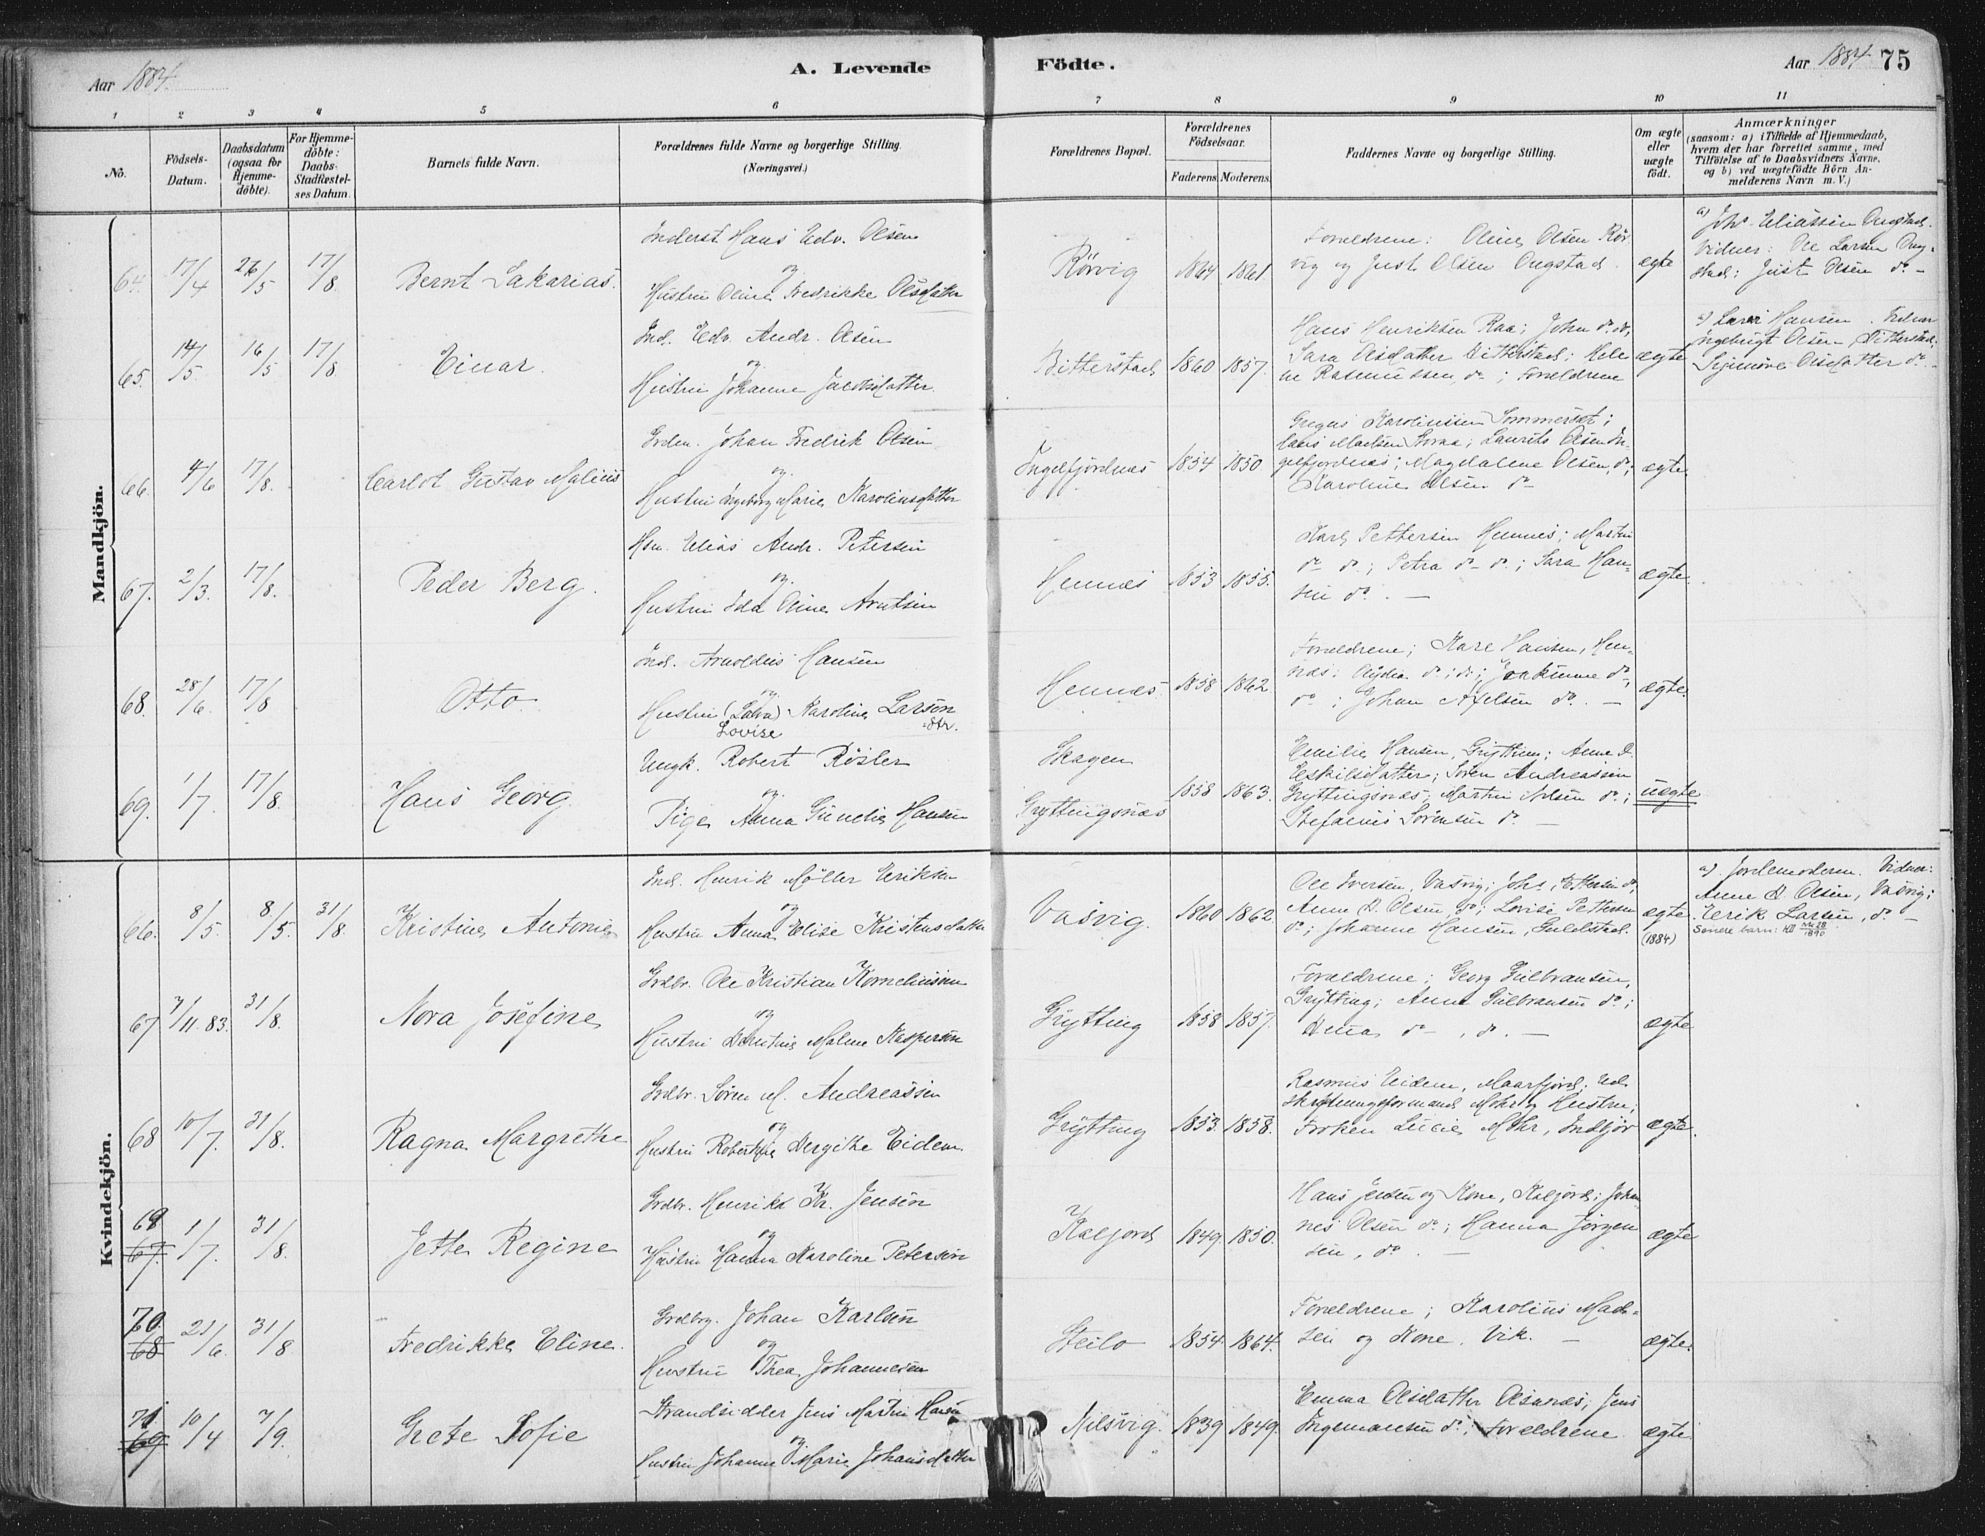 Aar 1884.
A. Levende Födte.
Aar 1884
75
1 2 3 4 5 6 7 8 9 10 11
No.
Födsels-Datum.
Daabsdatum (ogsaa for Hjemme-döbte).
For Hjemme-döbte: Daabs-Stadfæstel-ses Datum.
Barnets fulde Navn.
Forældrenes fulde Navne og borgerlige Stilling.
(Næringsvei.)
Forældrenes Bopæl.
Forældrenes Födselsaar.
Faderens. Moderens.
Faddernes Navne og borgerlige Stilling.
Om ægte eller uægte födt.
Anmærkninger
(saasom: a) i Tilfælde af Hjemmedaab,
hvem der har forrettet samme, med
Tilföielse af to Daabsvidners Navne.
og b) ved uægtefödte Börn An-
melderens Navn m. V.)
Mandkjön.
64. 17/4 26/5 17/8 Bernt Sakarias.
Inderst Hans Edv. Olsen
og
Hustru Oline Fredrikke Olsdatter
Rörvig 1864 1861
Forældrene: Oline Olsen Rör-
vig og Just Olsen Ongstad.
ægte
a) Johs Eliassen Ongstad.
Vidner: Ole Larsen Ong-
stad; Just Olsen do -
65. 14/5 16/5 17/8 Einar.
Ind. Edv. Andr. Olsen
og
Hustru Johanne Jakobsdatter.
Bitterstad 1860 1857.
Hans Henriksen Raa; John do. do,
Sara Olsdatter Bitterstad; Hele
ne Rasmussen, do; Forældrene
ægte
a) Hansen. Vidner
Ingebrigt Olsen Bitterstad;
Olsdatter do -
66. 4/6 17/8. Carlot Gustav Malius
Grdm. Johan Fredrik Olsen
og
Hustru Ingeborg Marie Karolinsdatter
Ingelfjordnæs 1854 1850
Karolinssen Sommerset;
Laurits Olsen In-
gelfjordnæs; Magdalene Olsen, do;
Karoline Olsen do
ægte.
67. 2/3. 17/8. Peder Berg.
Hsm. Elias Andr. Petersen
og
Hustru Ida Oline Arntsen
Hennes 1853 1855.
Karl Pettersen Hennes; Martin
do do; Petra do do; Sara Han-
sen do. -
ægte.
68. 28/6 17/8 Otto
Ind. Arnoldus Hansen
og
Hustru (Lova) Karoline Larsen
Lovise dtr.
Hennes 1858 1862
Forældrene; Kare Hansen, Hen-
næs; do; do; Joakimme do,
do; Johan Axelsen do. -
ægte.
69. 1/7. 17/8. Hans Georg.
Ungk. Robert Rösler
og
Pige Anna Gunelie Hansen
Skagen
Gryttingsnæs
1858 1863.
Emilie Hansen, Grytting; Anne D.
Eskilsdatter; Sören Andreassen
Gryttingsnæs; Martin Nilsen do;
Sörensen do. -
uægte
Kvindekjön.
66. 8/5. 8/5. 31/8. Kristine Antonie
Ind. Henrik Möller Eriksen
og
Hustru Anna Elise Kristensdatter
Vasvig. 1860 1862
Ole Iversen, Vasvig; Johs. do,
Anne D. Olsen do; Lovise Pettersen
do; Johanne Hansen, Guldstad.
ægte
(1884)
a) Jordemoderen. Vidner:
Anne D. Olsen, Vasvig;
Erik Larsen, do -
Senere barn: Nr 28/1890
67 7/11.83. 31/8. Nora Josefine
Grdbr. Ole Kristian Korneliussen
og
Hustru Malene Kaspersen
Grytting 1858 1857.
Forældrene; Georg Gulbransen,
Grytting; Anne Gulbransen do;
Dina do -, do. -
ægte
68 10/7. 31/8. Ragna Margrethe
Grdbr. Sören M. Andreassen
og
Hustru Bergithe Eidem.
Grytting 1853. 1858.
Rasmus Eidem, Maarfjord; Ud-
skiftningsformand Mohr og Hustru;
Fröken Lucie Mohr, Indfjor
ægte.
69 67. 1/7. 31/8. Jette Regine
Grdbr. Henrik Kr. Jensen
og
Hustru Hanna Karoline Petersen
Kaljord 1849. 1850.
Hans Jensen og Kone, Kaljord; Johan
nes Olsen do; Hanna Jörgen
sen, do. -
ægte
70. 68 21/6. 31/8 Fredrikke Eline.
Grdbrg. Johan Karlsen
og
Hustru Thea Johannesen
Steilo 1854. 1864.
Forældrene; Karolius Mad-
sen og Kone. Vik. -
ægte.
71. 69 10/4 7/9. Grete Sofie
Strandsidder Jens Martin Hansen
og
Hustru Johanne Marie Johansdatter
Nilsvig. 1839 1849.
Emma Olsdatter Olsnæs; Jens
Ingemansen do; Forældrene
ægte